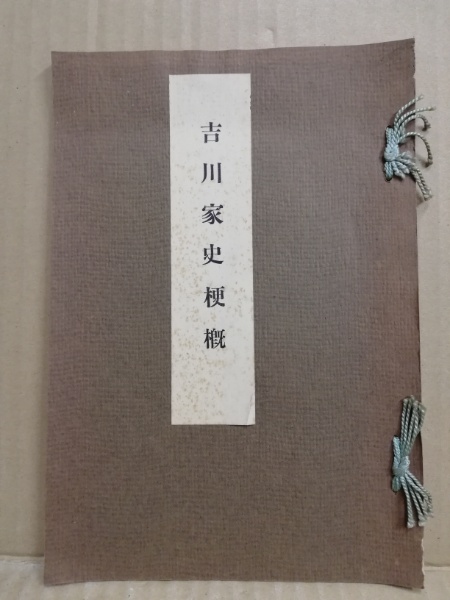 吉川家史梗概